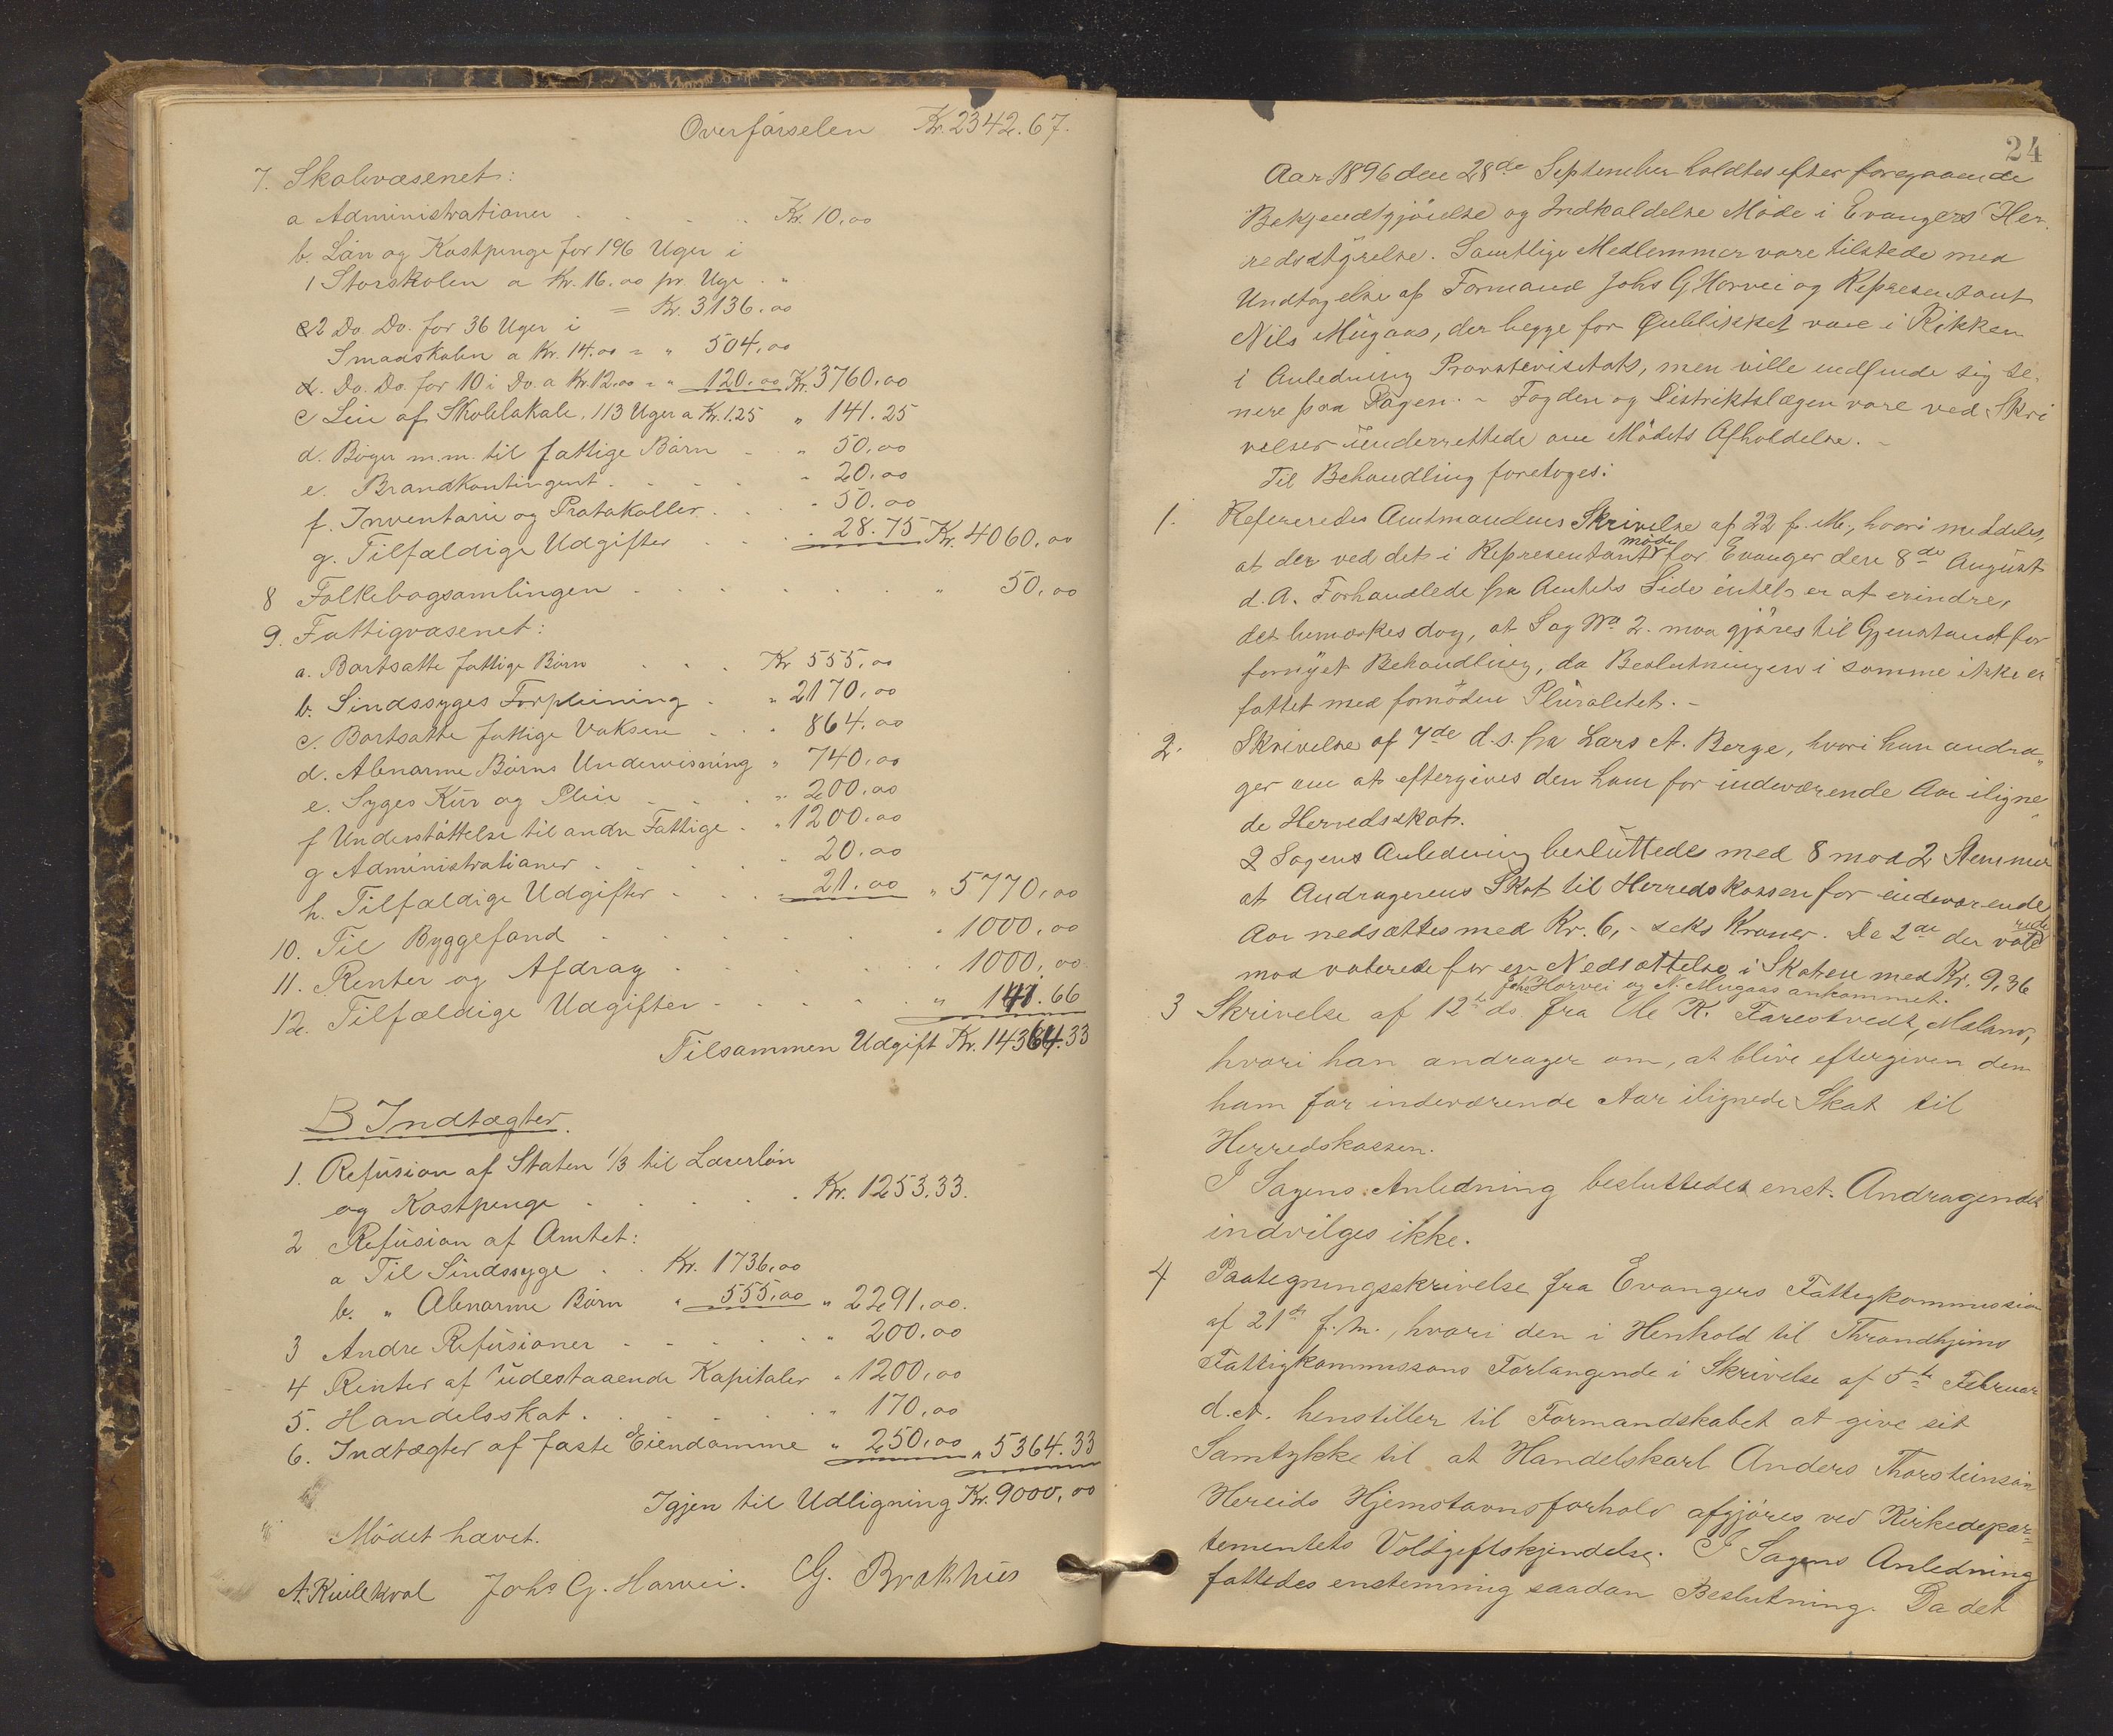 Overførselen Kr. 2342.67.
7. Skolevæsenet:
a Administrationen . . . . . Kr. 10,00
b. Løn og Kostpenge for 196 Uger i
1 Storskolen a Kr. 16.00 pr. Uge . "
= Kr. 3136.00
2 Do. Do. for 36 Uger i
Smaaskolen a Kr. 14.00 = " 504,00
Do. Do. for 10 i Do. a Kr. 12,00 = " 120,00 Kr. 3760,00
c Leie af Skolelokale, 113 Uger a Kr. 1.25 " 141.25
d. Bøger m.m. til fattige Børn - . " 50,00
e. Brandkontingent . . . . . " 20,00
f. Inventarie og Protokoller . . . . " 50.00
g. Tilfældige Udgifter . . . . 28.75 Kr. 4060,00
8 Folkebogsamlingen . . . . . . " 50,00
9. Fattigvæsenet:
a. Bortsatte fattige Børn . . . Kr 555,00
b. Sindssyges Forpleining . " 2170,00
c. Bortsatte fattige Voksne . . . 864,00
d. Abnorme Børns Undervisning " 740,00
e. Syges Kur og Pleie . . . " 200,00
f Understøttelse til andre Fattige . " 1200,00
g Administrationer . . . . " 20,00
h. Tilfældige Udgifter . . . " 21.00 " 5770,00
10. Til Byggefond . . . . . . " 1000,00
11. Renter og Afdrag . . . . . . " 1000,00
12. Tilfældige Udgifter . . . . . " 141.66
Tilsammen Udgift Kr. 14364.33
B Indtægter.
1. Refusion af Staten 1/3 til Lærerløn
og Kostpenge . . . . . . Kr. 1253.33.
2 Refusion af Amtet:
a Til Sindssyge . . Kr. 1736,00
b. " Abnorme Børn " 555,00 " 2291,00.
3 Andre Refusioner . . . . . " 200.00
4 Renter af udestaaende Kapitaler " 1200,00
5. Handelsskat . . . . . . " 170,00
6. Indtægter af faste Eiendomme " 250,00 " 5364.33
Igjen til Udligning Kr. 9000,00
Mødet hævet.
A. Kvilekval Johs G. Horvei. G. Brakhus
24
Aar 1896 den 28de September holdtes efter foregaaende
Bekjendtgjørelse og Indkaldelse Møde i Evangers Her-
redsstyrelse. Samtlige Medlemmer vare tilstede med
Undtagelse af Formand Johs G Horvei og Repræsentant
Nils Mugaas, der begge for Øieblikket vare i Kirken
i Anledning Provstevisitats, men ville indfinde sig se-
nere paa Dagen. - Fogden og Distriktslægen vare ved Skri
velser underrettede om Mødets Afholdelse. -
Til Behandling foretoges:
1. Refereredes Amtmandens Skrivelse af 22 f. M., hvori meddeles,
at der ved det i Repræsentantmøde for Evanger den 8de August
d. A. Forhandlede fra Amtets Side intet er at erindre,
det bemærkes dog, at Sag No 2. maa gjøres til Gjenstand for
fornyet Behandling, da Beslutningen i samme ikke er
fattet med fornøden Pluralitet. -
2. Skrivelse af 7de d.s. fra Lars A. Berge, hvori han andra-
ger om at eftergives den ham for indeværende Aar iligne-
de Herredsskat.
I Sagens Anledning besluttedes med 8 mod 2 Stemmer
at Andragerens Skat til Herredskassen for indeværende
Aar nedsættes med Kr. 6,- seks Kroner. De 2de der voterede
mod voterede for en Nedsættelse i Skatten med Kr. 9,36
Johs Horvei og N. Mugaas ankommet.
3 Skrivelse af 12te ds. fra Ole K. Farestvedt, Maland,
hvori han andrager om, at blive eftergiven den
ham for indeværende Aar ilignede Skat til
Herredskassen.
I Sagens Anledning besluttedes enst. Andragendet
indvilges ikke.
4 Paategningsskrivelse fra Evangers Fattigkommission
af 21de f.M., hvori den i Henhold til Throndhjems
Fattigkommissons Forlangende i Skrivelse af 5te Februar
d.A. henstiller til Formandskabet at give sit
Samtykke til at Handelskarl Anders Thorsteinsøn
Hereids Hjemstavnsforhold afgjøres ved Kirkedepar-
tementets Voldgiftskjendelse. I Sagens Anledning
fattedes enstemmig saadan Beslutning. Da det